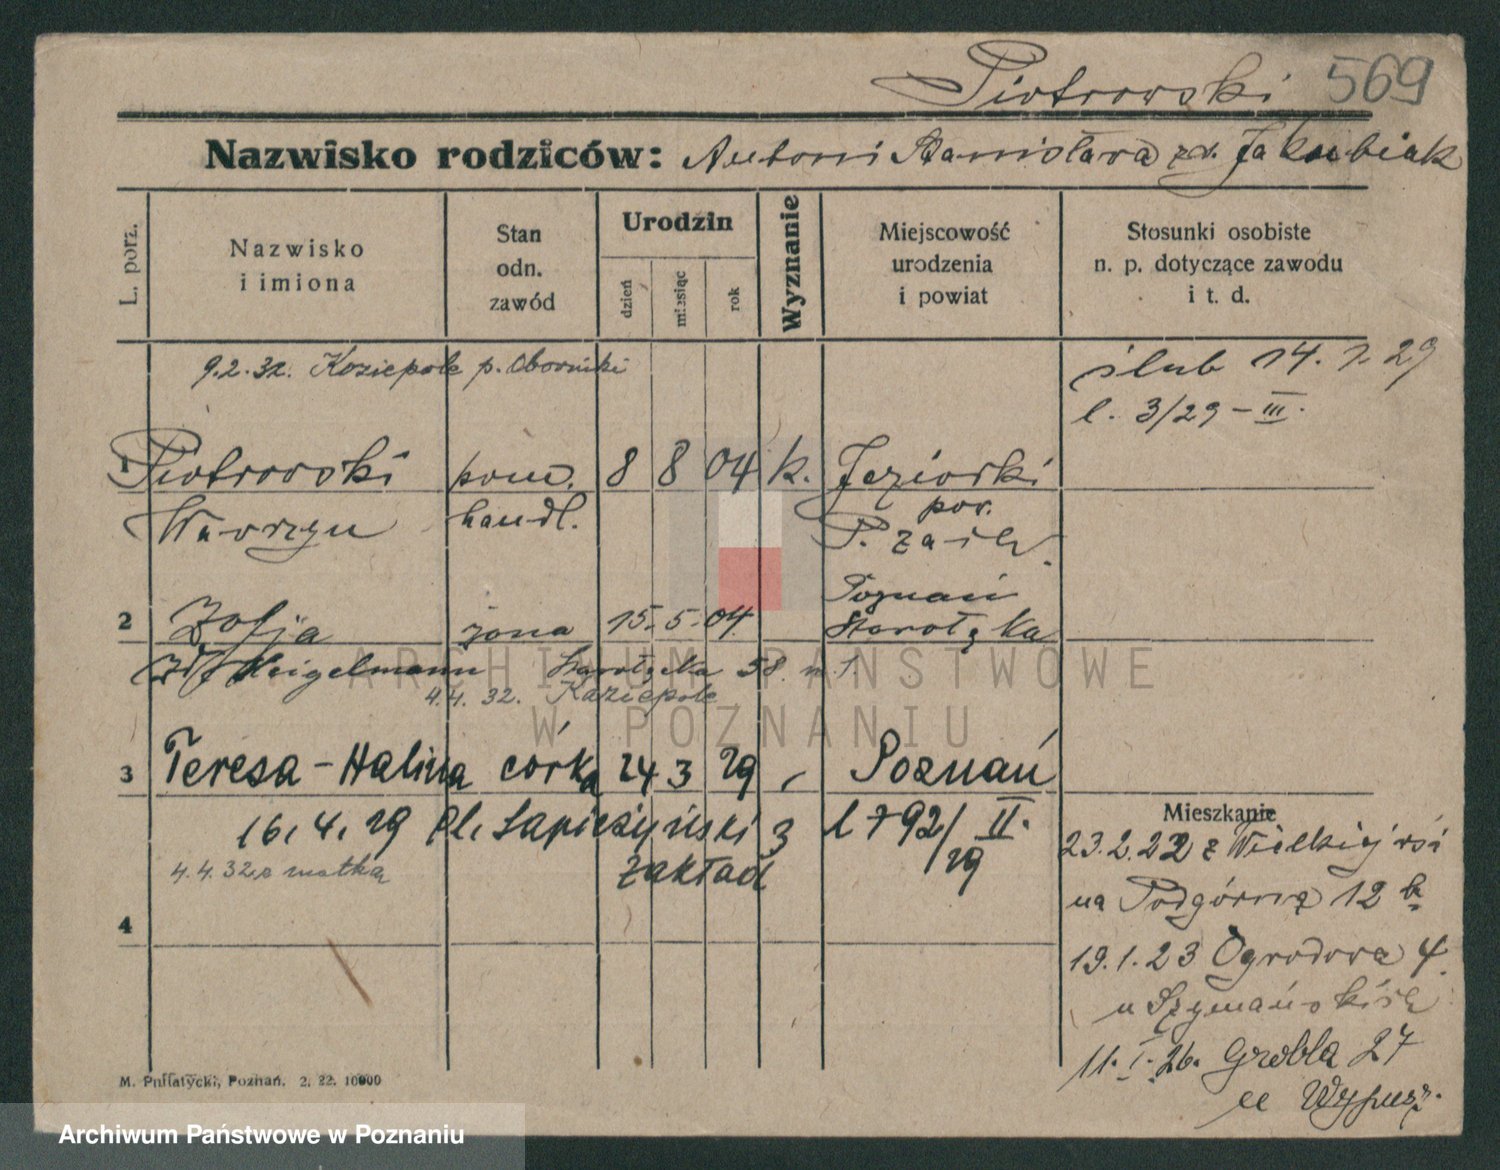 Piotrowski 569
Nazwisko rodziców: Antoni Stanisława zd. Jakubiak
L. porz.
Nazwisko
i imiona
Stan
odn.
zawód
Urodzin
dzień
miesiąc
rok
Wyznanie
Miejscowość
urodzenia
i powiat
Stosunki osobiste
n. p. dotyczące zawodu
i t. d.
9.2.32. Koziepole p. Oborniki
ślub 14. 1. 29
l. 3/29 - III.
1 Piotrowski pom. 8 8 04 k. Jeziorki
Wawrzyn handl. pow.
P. zach.
Poznań
2 Zofja żona 15. 5. 04 Starołęka
zd. Heigelmann Starołęcka 58. m 1.
4.4. 32. Koziepole
ARCHIWUM PAŃSTWOWE
W POZNANIU
3 Teresa - Halina córka 24 3 29 Poznań
16. 4. 29 Pl. Sapieżyński 3 l 792/ II.
zakład /29
4.4.32 z matką
4
Mieszkanie
23.2.22 z Wielkiej wsi
na Podgórną 12 b
19.1.23 Ogrodowa 4
u Szymańskich
11. I. 26. Grobla 27
u
M. Putiatycki, Poznań. 2. 22. 10000
Archiwum Państwowe w Poznaniu